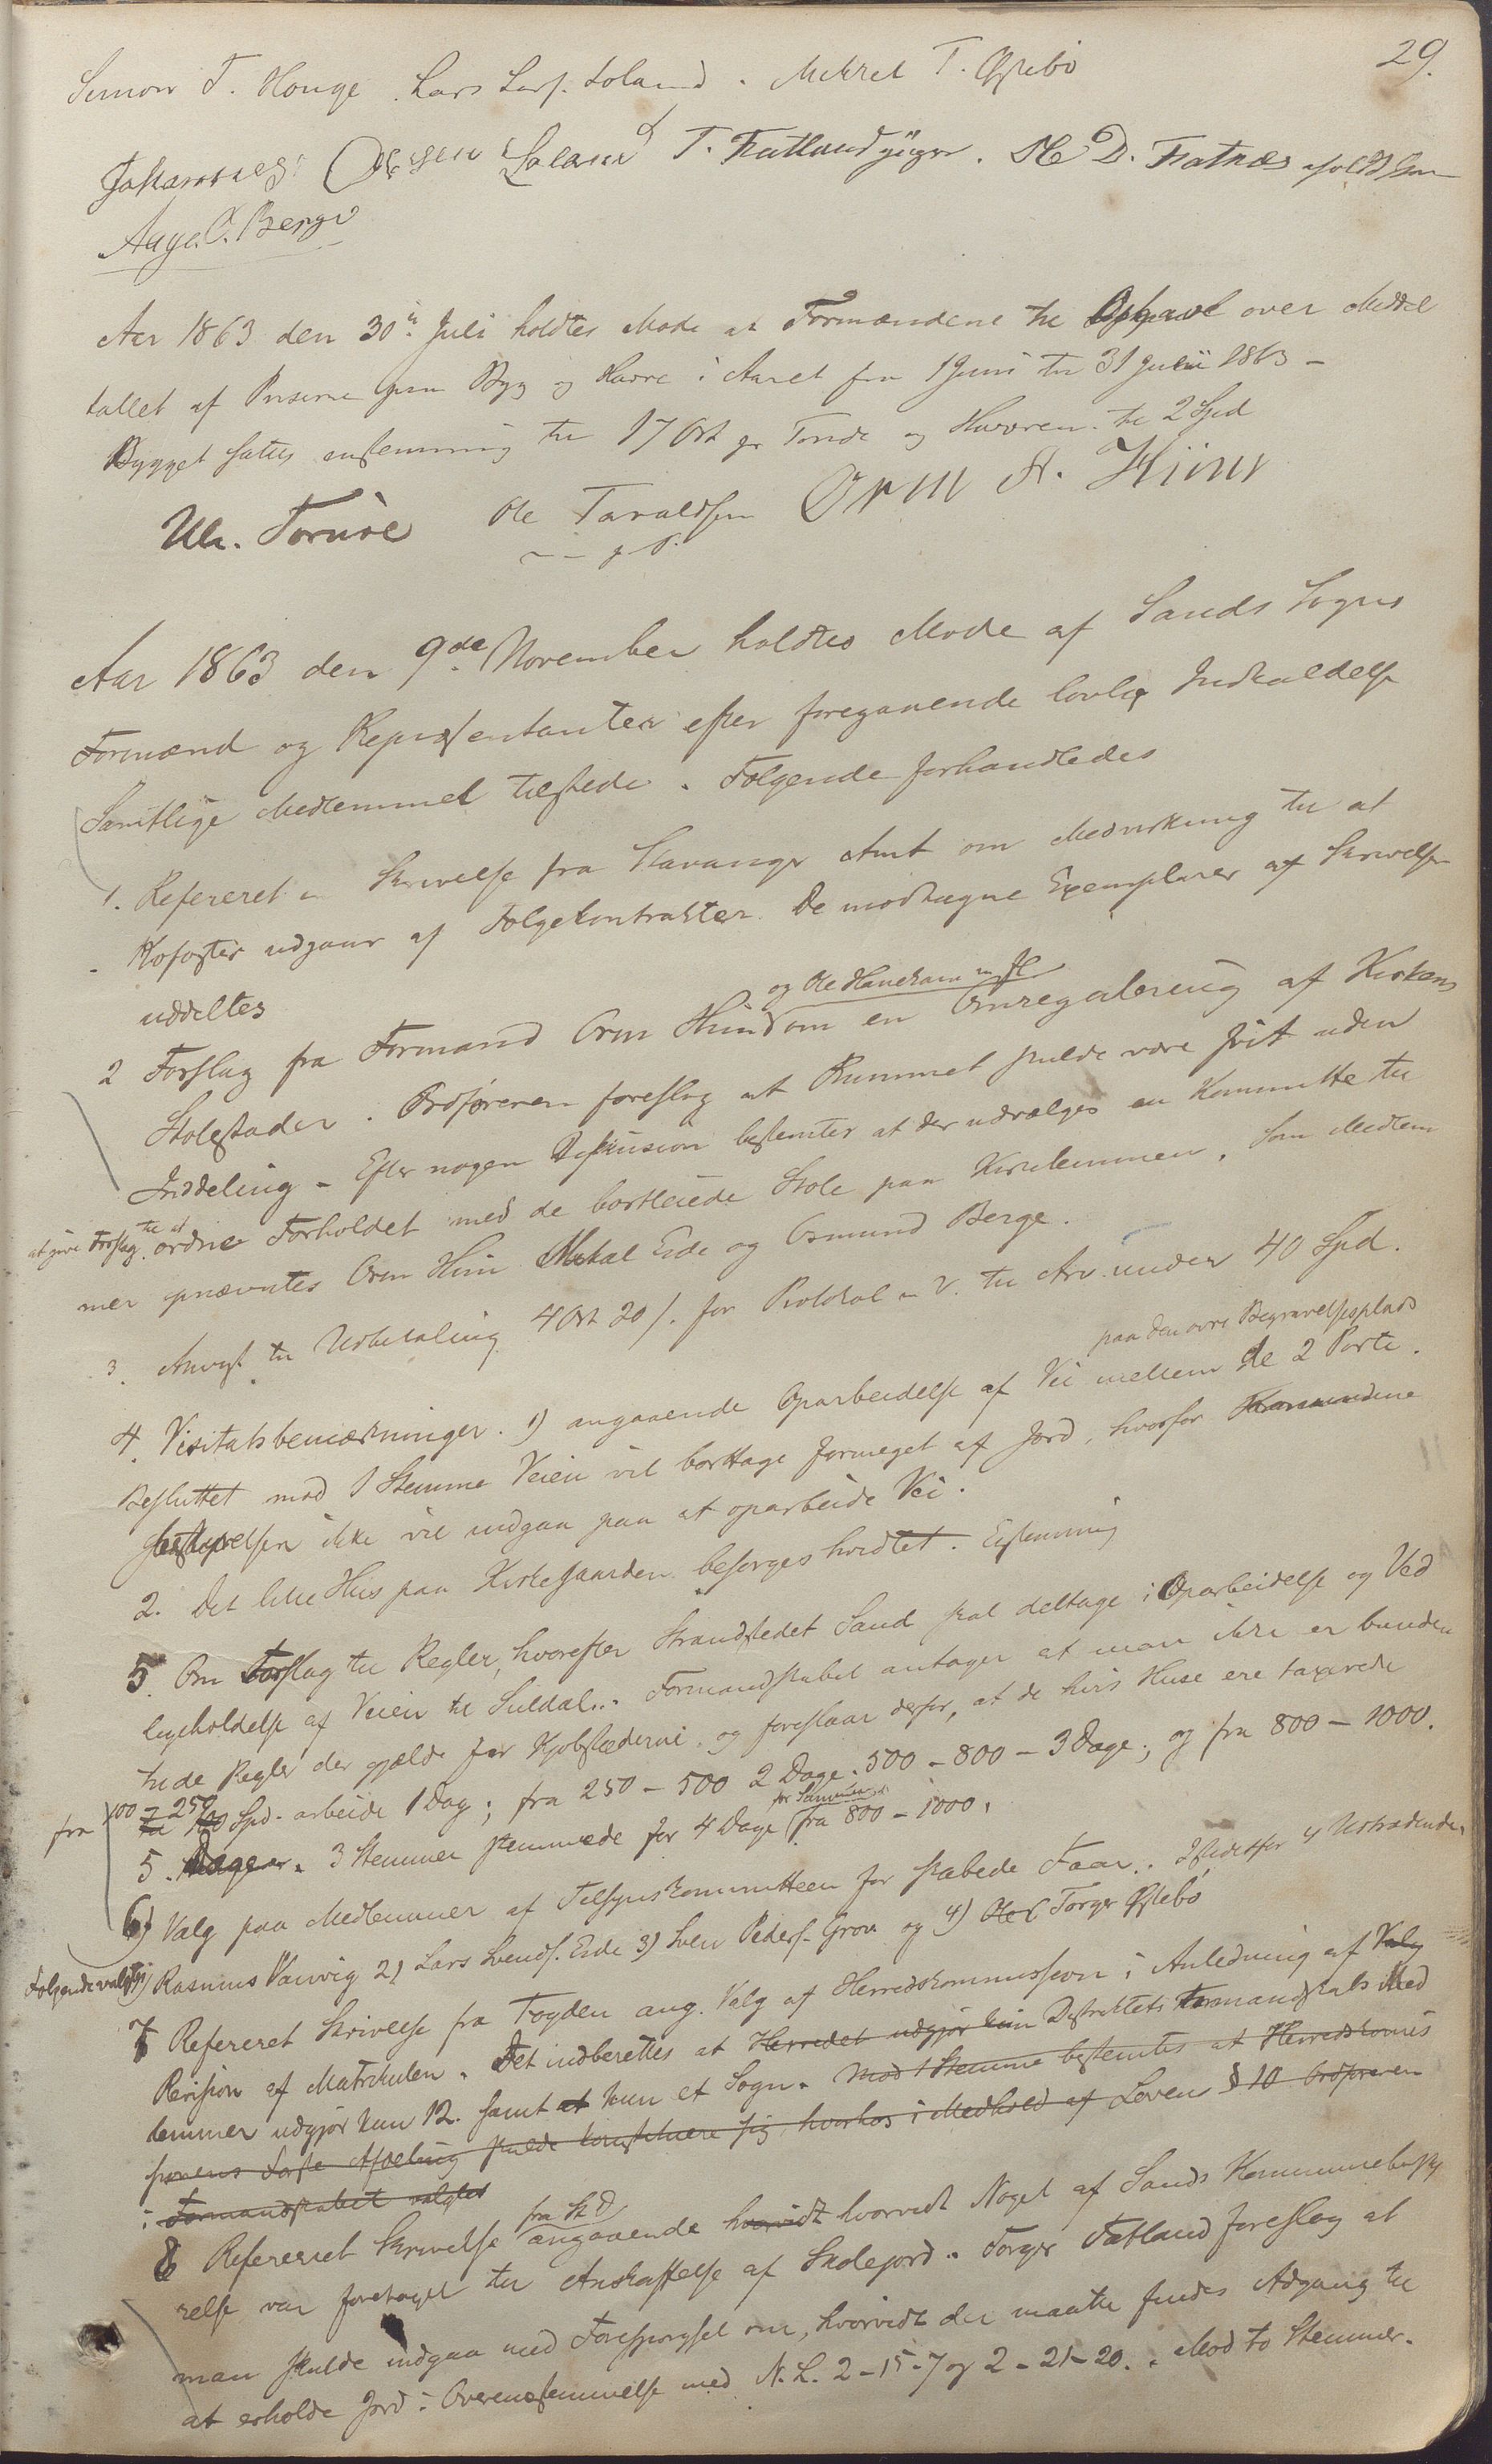 29.
Simon T. Hauge. Lars Lars. Loland. Mikkel T. Østebø
Johannes Olsen Laland T. Fatland M D. Fatnæs
Aage. O. Berge
Aar 1863 den 30te Juli holdtes Møde af Formændene til Opgave over Middel
tallet af Priserne paa Byg og Havre i Aaret fra 1 Juni til 31 Juli 1863 –
Bygget sattes enstemmig til 17 Ort pr Tønde og Havren til 2 Spd
Ole Taraldsen Orm A. Hiim
Aar 1863 den 9de November holdtes Møde af Sands Sogns
Formænd og Repræsentanter efter foregaaende lovlig Indkaldelse
Samtlige Medlemmer tilstede. Følgende forhandledes
1. Refereret en Skrivelse fra Stavanger Amt om Medvirkning til at
udgaar af Folgekontrakter. De modtagne Exemplarer af Skrivelsen
uddeltes
og Ole
2 Forslag fra Formand Orm Hiim om en Omregulering af Kirkens
Stolestader. Ordføreren foreslog at Rummet skulde være frit uden
Inddeling – Efter nogen Diskusion bestemtes at der udvælges en Kommitte til
at give Forslag til at ordne Forholdet med de bortleiede Stole paa Kirkelemmen. Som Medlem
mer opnævntes Orm Hiim Mikal Eide og Osmund Berge.
3. Anvist til Udbetaling 4 Ort 20 s. for Protokol til Arv under 40 Spd.
paa den øvre Begravelsesplads
4. Visitatsbemærkninger. 1) angaaende Oparbeidelse af Vei mellem de 2 Porte.
Besluttet mod 1 Stemme Veien vil borttage formeget af Jord, hvorfor Kommune
bestyrelsen ikke vil indgaa paa at oparbeide Vei.
2. Det lille Hus paa Kirkegaarden besørges hvidtet. Enstemmig
5. Om Forslag til Regler, hvorefter Strandstedet Sand skal deltage i Oparbeidelse og Ved
ligeholdelse af Veien til Suldal.. Formandskabet antager at man ikke er bunden
til de Regler der gjælde for Kjøbstæderne, og foreslaar derfor, at de hvis Huse ere taxerede
fra 100 – 250 Spd. arbeide 1 Dag; fra 250 – 500 2 Dage. 500 – 800 – 3 Dage; og fra 800 – 1000.
5. Dage. 3 Stemmer stemmede for 4 Dage fra 800 – 1000.
6) Valg paa Medlemmer af Tilsynskommitteen for skabede Faar.. Istedetfor 4 Udtrædende.
Følgende valgtes 1) Rasmus Vanvig 2) Lars Svends. Eide 3) Sven Peders. Grov og 4) Torger Østebø
7 Refereret Skrivelse fra Fogden ang. Valg af Herredskommission i Anledning af Valg
Revision af Matrikulen. Det indberettes at Herredet udgjør kun Distriktets Formandskabs Med
lemmer udgjør kun 12. samt at kun et Sogn. Mod 1 Stemme bestemtes at Herredskomis
sionens første Afdeling skulde konstituere sig hvorhos i Medhold af Loven § 10 Ordføreren
i Formandskabet valgtes
8 Refereret Skrivelse angaaende hvorvidt hvorvidt Noget af Sands Kommunebesty
relse var foretaget til Anskaffelse af Skolejord. Torger Fatland foreslog at
man skulde indgaa med Forespørgsel om, hvorvidt der maatte findes Adgang til
at erholde Jord i Overensstemmelse med N. L. 2 – 15 – 7 og 2 – 21 – 20. Mod to Stemmer.